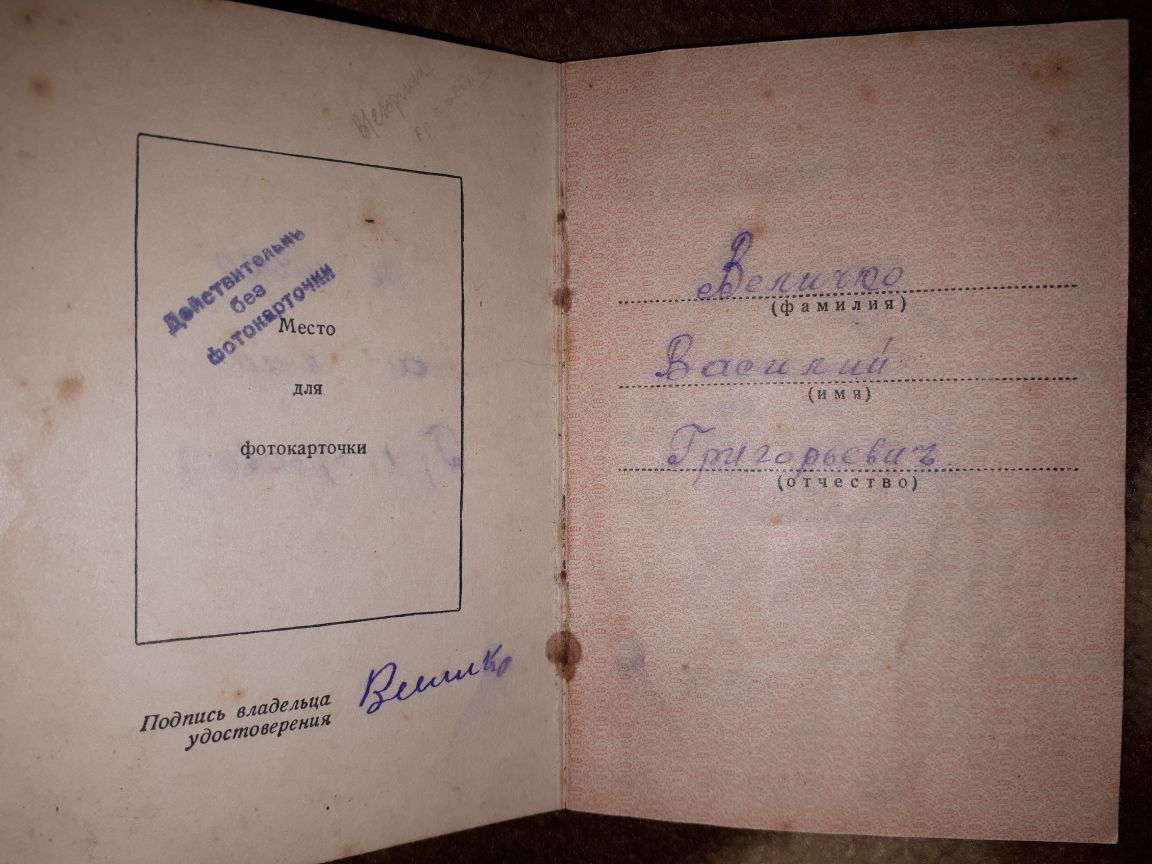 Действительно
без
фотокарточки
Место
для
фотокарточки
Подпись владельца
удостоверения
Величко
Величко
(фамилия)
Василий
(имя)
Григорьевич
(отчество)